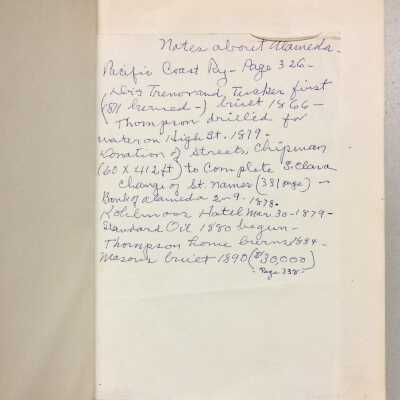 Notes about Alameda-
Pacific Coast Ry- Page 326-
Trenor and, Tucker first
(81 burned-) built 1866-
Thompson drilled for
water on High St. 1879-
Donation of Streets Chipman
(60 X 412 ft) to Complete S. Clara
Change of St. names (381 page) -
Bank of Alameda 2-9-1878-
Hotel Mar. 30-1879-
Standard Oil 1880 begun-
Thompson home burns 1884-
Masons built 1890 ($30,000)
Page 338-